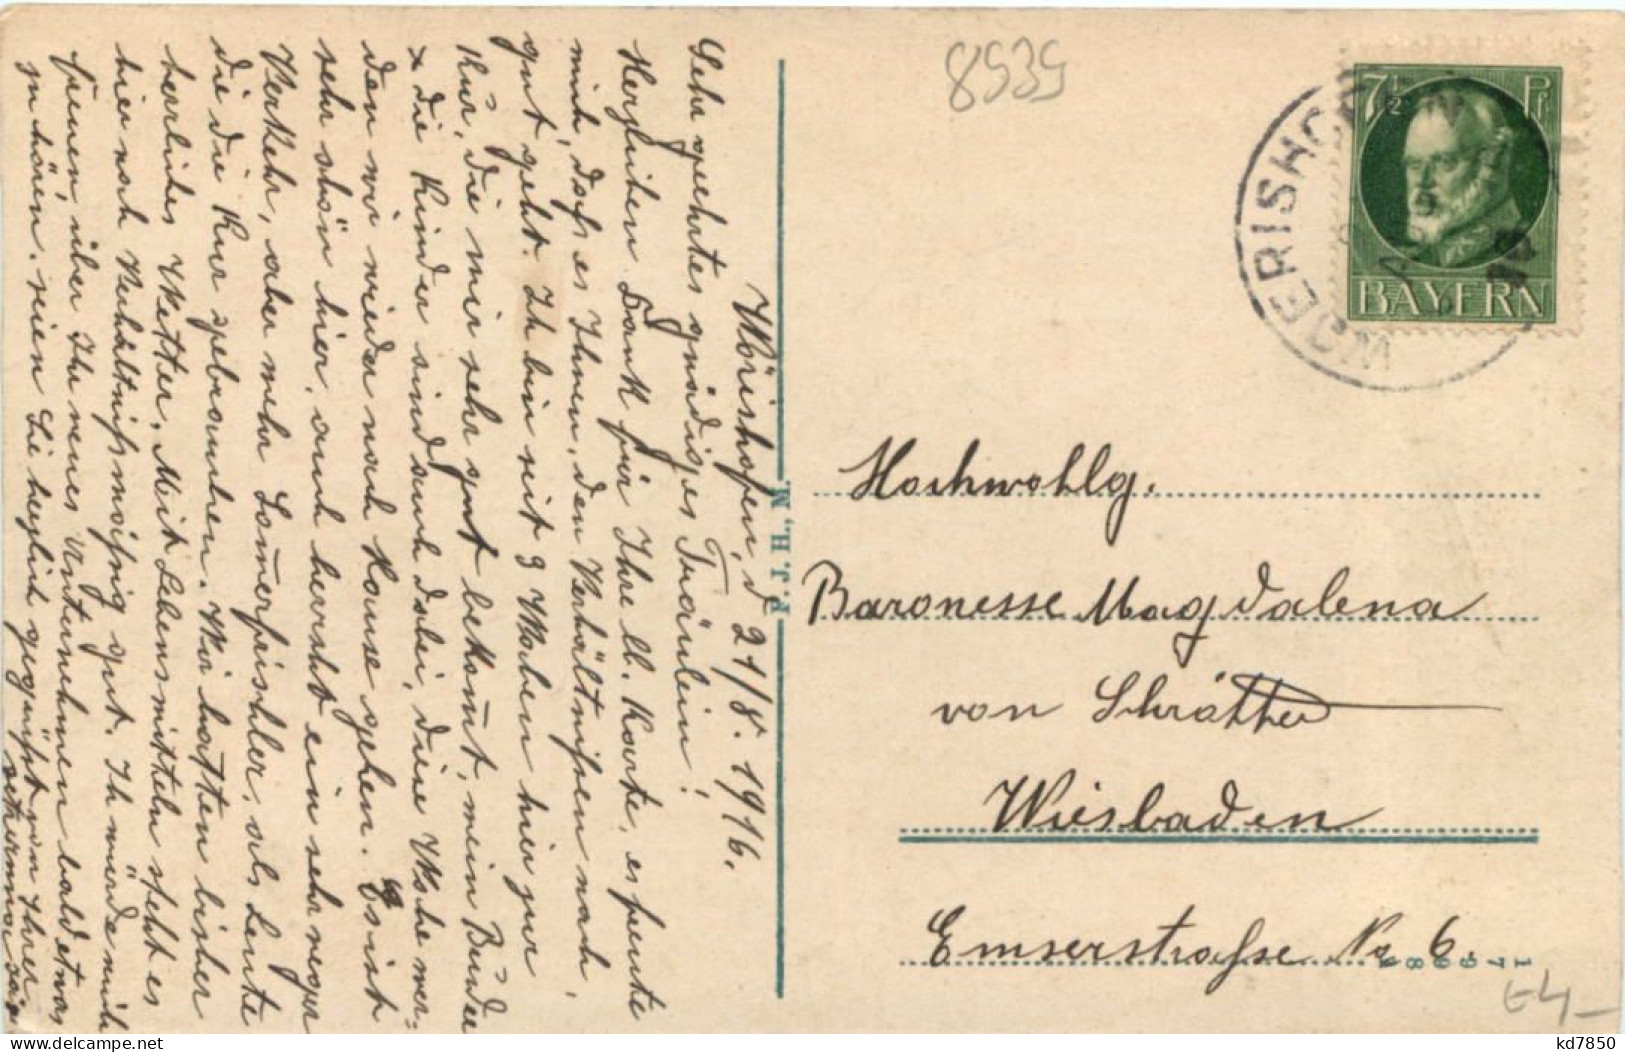 Wörishofen, d 21/8. 1916.
Sehr geehrtes gnädiges Fräulein!
Herzlichen Dank für Ihre lb. Karte, es freute
mich, dass es Ihnen, den Verhältnissen nach,
gut geht. Ich bin seit 3 Wochen hier zur
Kur, die mir sehr gut bekom̄t, mein Bruder
x die Kinder sind auch dabei, diese Woche wer=
den wir wieder nach Hause gehen. Es ist
sehr schön hier, auch herrscht ein sehr reger
Verkehr, aber mehr Som̄erfrischler, als Leute
die die Kur gebrauchen. Wir hatten bisher
herrliches Wetter. Mit Lebensmitteln steht es
hier noch Verhältnißmäßig gut. Ich würde mich
freuen, über Ihr neues Unternehmen bald etwas
zu hören. seien Sie herzlich gegrüßt von Ihrer
P. J. H., M.
8535
7½ Pf
BAYERN
WOERISHOFEN
Hochwohlg.
Baronesse Magdalena
von Schröther
Wiesbaden
Emserstraße No 6.
17998
E4-
kd7850